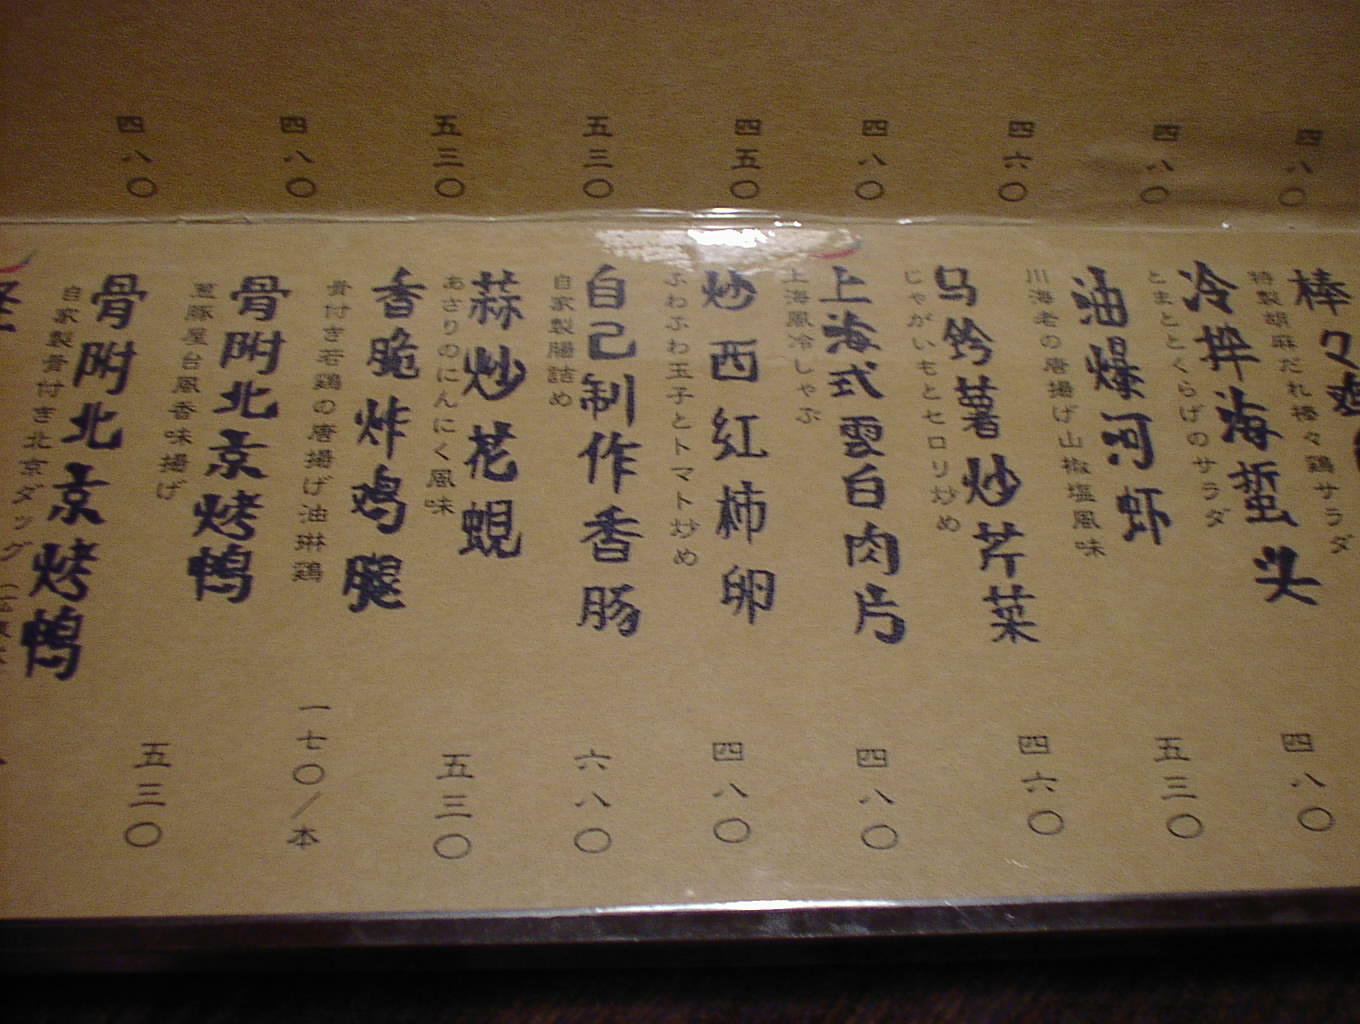 四八〇
四八〇
四六〇
四八〇
四五〇
五三〇
五三〇
四八〇
四八〇
特製胡麻だれ棒々鶏サラダ
四八〇
冷拌海蜇头
とまととくらげのサラダ
五三〇
油爆河虾
川海老の唐揚げ山椒塩風味
四六〇
马鈴薯炒芹菜
じゃがいもとセロリ炒め
四八〇
上海式雲白肉片
上海風冷しゃぶ
四八〇
炒西红柿卵
ふわふわ玉子とトマト炒め
六八〇
自己制作香豚
自家製腸詰め
五三〇
蒜炒花蜆
あさりのにんにく風味
一七〇/本
香脆炸鸡腿
骨付き若鶏の唐揚げ油琳鶏
五三〇
骨附北京烤鸭
葱豚屋台風香味揚げ
骨附北京烤鸭
自家製骨付き北京ダック